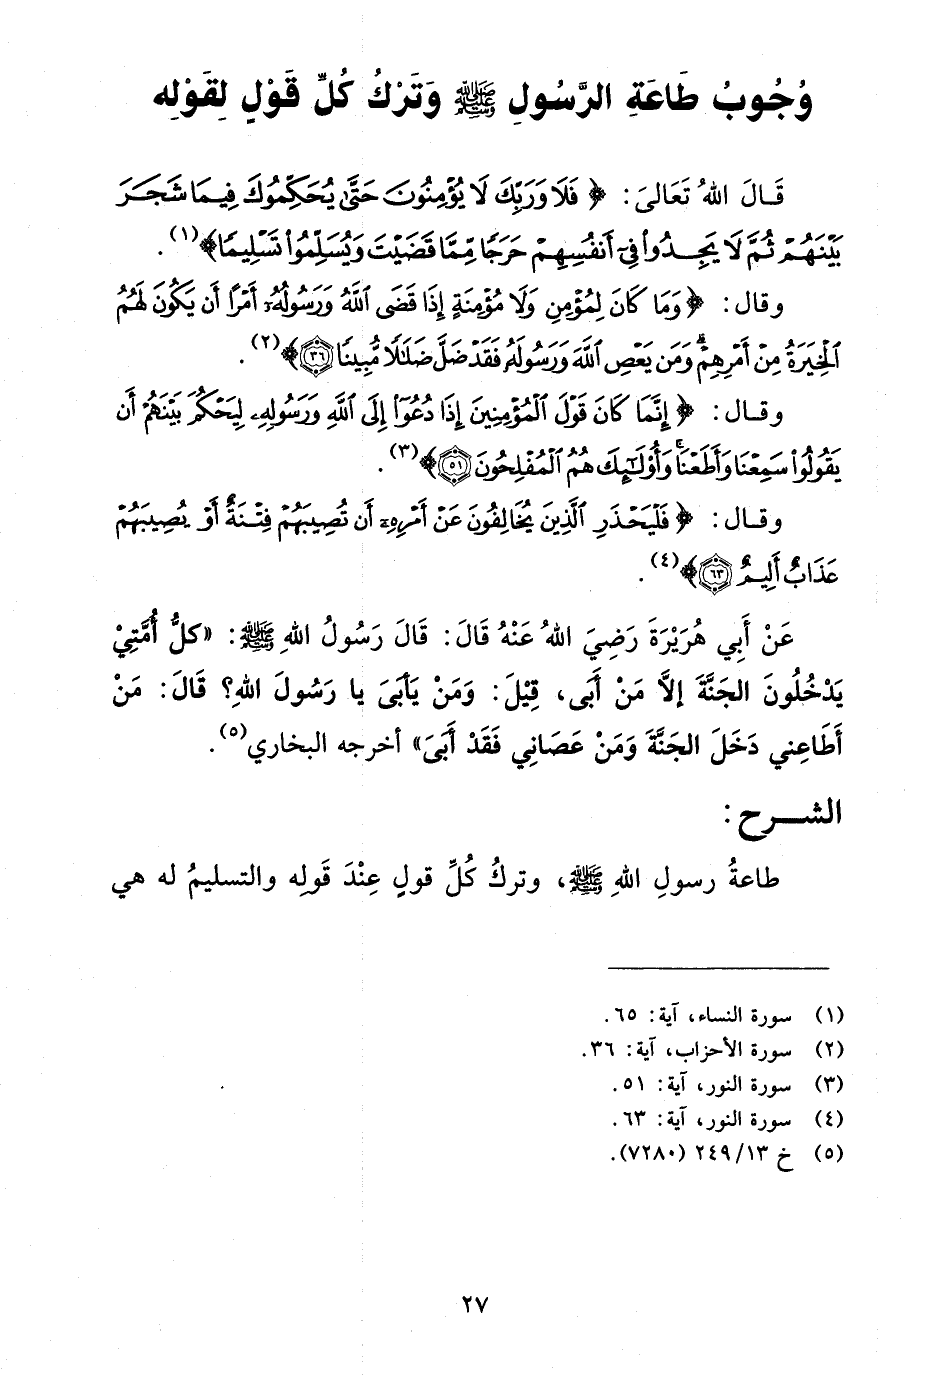 وُجُوبُ طَاعَةِ الرَّسُولِ ﷺ وَتَرْكُ كُلِّ قَوْلٍ لِقَوْلِهِ
قَالَ اللهُ تَعَالىَ: ﴿ فَلَا وَرَبِّكَ لَا يُؤْمِنُونَ حَتَّىٰ يُحَكِّمُوكَ فِيمَا شَجَرَ
بَيْنَهُمْ ثُمَّ لَا يَجِدُوا۟ فِىٓ أَنفُسِهِمْ حَرَجًا مِّمَّا قَضَيْتَ وَيُسَلِّمُوا۟ تَسْلِيمًا﴾(١).
وقال: ﴿ وَمَا كَانَ لِمُؤْمِنٍ وَلَا مُؤْمِنَةٍ إِذَا قَضَى ٱللَّهُ وَرَسُولُهُۥٓ أَمْرًا أَن يَكُونَ لَهُمُ
ٱلْخِيَرَةُ مِنْ أَمْرِهِمْ ۗ وَمَن يَعْصِ ٱللَّهَ وَرَسُولَهُۥ فَقَدْ ضَلَّ ضَلَٰلًا مُّبِينًا ٣٦﴾(٢).
وقال: ﴿ إِنَّمَا كَانَ قَوْلَ ٱلْمُؤْمِنِينَ إِذَا دُعُوٓا۟ إِلَى ٱللَّهِ وَرَسُولِهِۦ لِيَحْكُمَ بَيْنَهُمْ أَن
يَقُولُوا۟ سَمِعْنَا وَأَطَعْنَا ۚ وَأُو۟لَٰٓئِكَ هُمُ ٱلْمُفْلِحُونَ ٥١﴾(٣).
وقال: ﴿ فَلْيَحْذَرِ ٱلَّذِينَ يُخَالِفُونَ عَنْ أَمْرِهِۦٓ أَن تُصِيبَهُمْ فِتْنَةٌ أَوْ يُصِيبَهُمْ
عَذَابٌ أَلِيمٌ ٦٣﴾(٤).
عَنْ أَبِي هُرَيْرَةَ رَضِيَ اللهُ عَنْهُ قَالَ: قَالَ رَسُولُ اللهِ ﷺ: «كلُّ أُمَّتِيْ
يَدْخُلُونَ الجَنَّةَ إلاَّ مَنْ أَبَى، قِيْلَ: وَمَنْ يَأبَىَ يا رَسُولَ اللهِ؟ قَالَ: مَنْ
أَطَاعِني دَخَلَ الجَنَّةَ وَمَنْ عَصَانِي فَقَدْ أَبَىَ» أخرجه البخاري(٥).
الشـــرح:
طاعةُ رسولِ اللهِ ﷺ، وتركُ كُلِّ قولٍ عِنْدَ قَولِه والتسليمُ له هي
(١) سورة النساء، آية: ٦٥.
(٢) سورة الأحزاب، آية: ٣٦.
(٣) سورة النور، آية: ٥١.
(٤) سورة النور، آية: ٦٣.
(٥) خ ١٣/ ٢٤٩ (٧٢٨٠).
٢٧